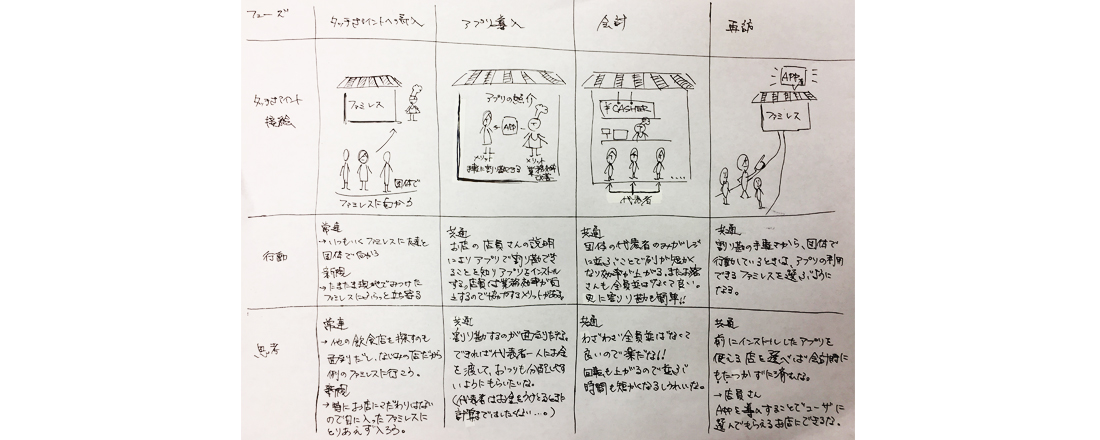 フェーズ
タッチポイントへの導入
アプリ導入
会計
再訪
タッチポイント
接触
ファミレス
団体で
ファミレスに向かう
アプリの紹介
APP
メリット
メリット
¥CASHER
代表者
APP
ファミレス
行動
常連
→いつもいくファミレスに友達と
団体で向かう
新規
→たまたま現地でみつけた
ファミレスにふらっと立ち寄る
共通
お店の店員さんの説明
によりアプリで割り勘でき
ることを知りアプリをインストール
する。店員は業務効率が向
上するので協力するメリットがある。
共通
団体の代表者のみがレジ
に並ぶことで列が短かく
なり効率が上がる。またお客
さんも全員並ばなくて良い。
更に割り勘も簡単!!
共通
割り勘の手軽さから、団体で
行動しているときは、アプリの利用
できるファミレスを選ぶように
なる。
思考
常連
→他の飲食店を探すのも
面倒だし、なじみの店だから
例のファミレスに行こう。
新規
→特にお店にこだわりはない
ので目に入ったファミレスに
とりあえず入ろう。
共通
割り勘するのが面倒だな。
できれば代表者一人にお金
を渡して、おつりも分配しやす
いようにもらいたいな。
(代表者はお金をうけとるときまで
計算まではしたくない…。)
共通
わざわざ全員並ばなくて
良いので楽だな!!
回転も上がるので並ぶ
時間も短かくなるしうれしいな。
共通
前にインストールしたアプリを
使える店を選べば会計時に
もたつかずに済むな。
→店員さん
APPを導入することでユーザに
選んでもらえるお店にできるな。